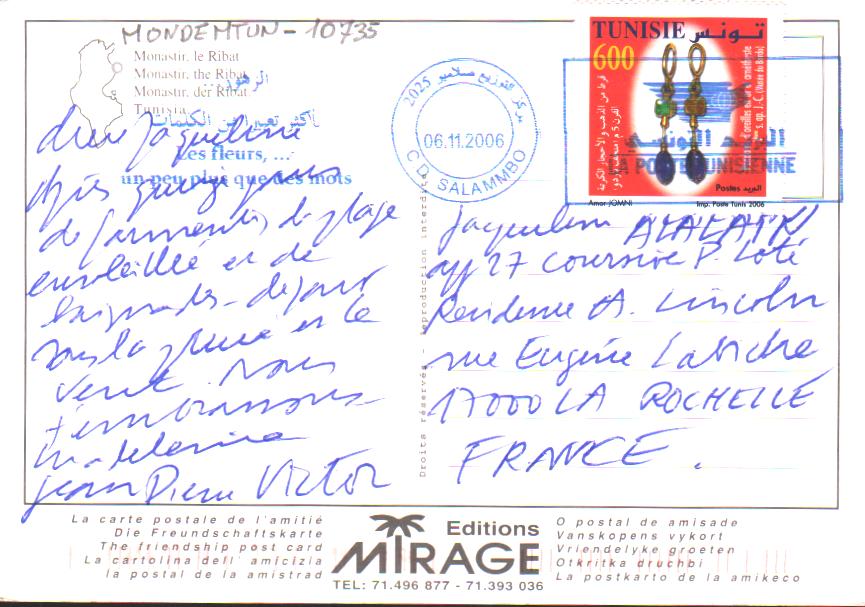 MONDEMTUN - 10735
Monastir, le Ribat
Monastir, the Ribat
Monastir, der Ribat
Tunisia
الزهور
أكثر تعبيرا من الكلمات
Les fleurs, ...
un peu plus que des mots
chère Jaqueline
Après quelques jours
de farniente, de plage
ensoleillée et de
baignades - séjour
sous la pluie et le
vent. Nous
t'embrassons
Madeleine
Jean Pierre Victor
2025 مركز التوزيع صلامبو
06.11.2006
C.D. SALAMMBO
TUNISIE تونس
600
قرط من الذهب والأحجار الكريمة
s. ap. J. C. (Musée du Bardo)
Postes البريد
Amor JOMNI
Imp. Poste Tunis 2006
البريد التونسي
LA POSTE TUNISIENNE
Jaqueline ALALAIN
app 27 coursive P. Loti
Residence A. Lincoln
rue Eugène Labiche
17000 LA ROCHELLE
FRANCE.
Droits réservés - Reproduction interdite
La carte postale de l'amitié
Die Freundschaftskarte
The friendship post card
La cartolina dell' amicizia
la postal de la amistrad
Editions
MIRAGE
TEL: 71.496 877 - 71.393 036
O postal de amisade
Vanskopens vykort
Vriendelyke groeten
Otkritka druchbi
La postkarto de la amikeco